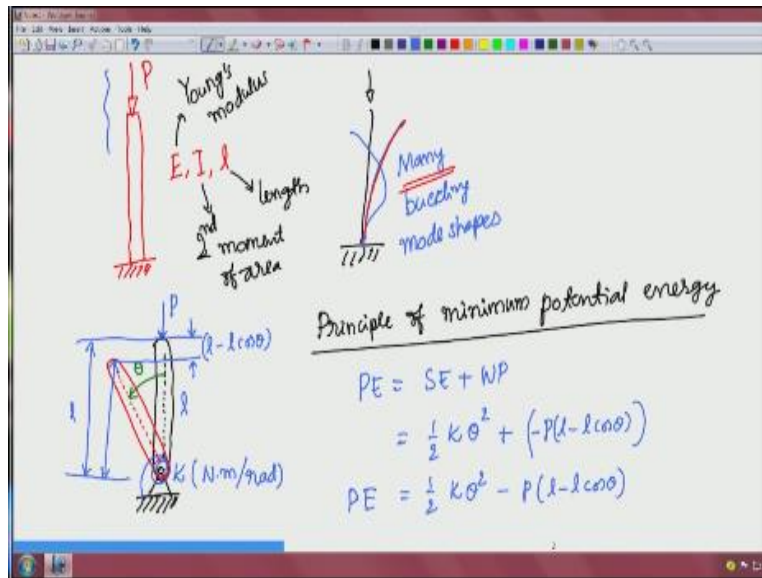 File Edit View Insert Actions Tools Help
P
Young's
modulus
E, I, l
length
2nd moment
of area
Many
buckling
mode shapes
P
(l-l cosθ)
θ
l
l
K (N.m/rad)
Principle of minimum potential energy
PE = SE + WP
= 1/2 Kθ² + (-P(l-l cosθ))
PE = 1/2 Kθ² - P(l-l cosθ)
2